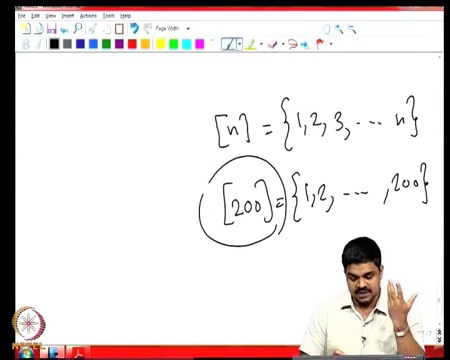 File Edit View Insert Actions Tools Help
Page Width
B
[n] = {1, 2, 3, ... n}
[200] = {1, 2, ..., 200}
NPTEL